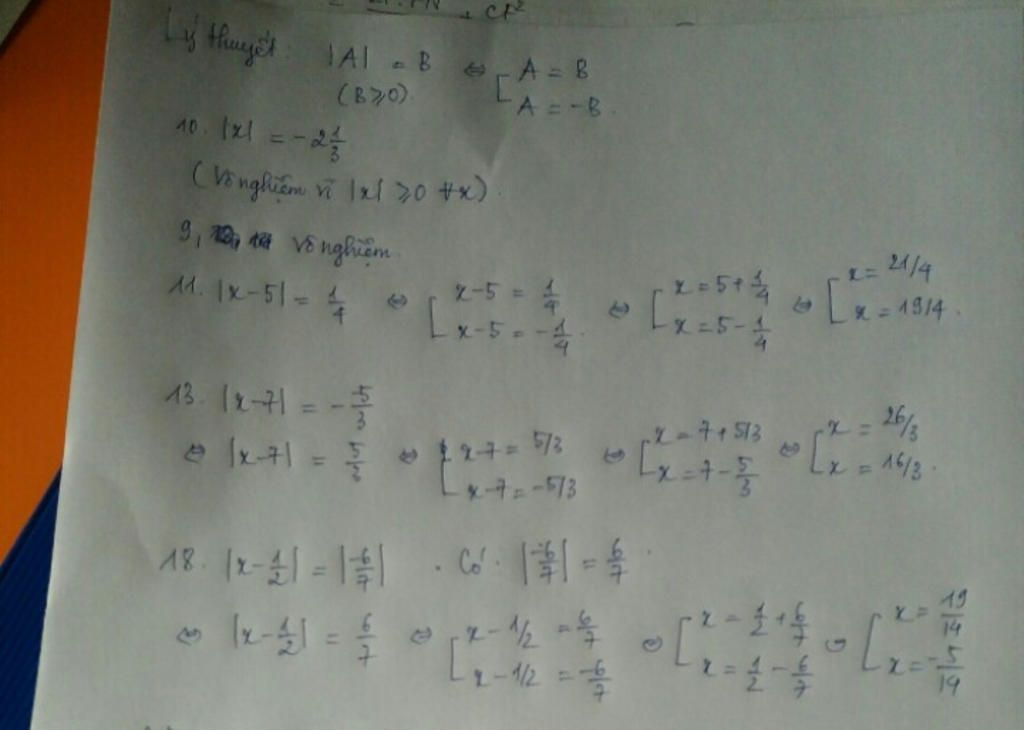 Lý thuyết: |A| = B ⇔ [ A = B
(B ≥ 0) A = -B.
10. |x| = -2 1/3
(Vô nghiệm vì |x| ≥ 0 ∀x).
9, vô nghiệm.
11. |x-5| = 1/4 ⇔ [ x-5 = 1/4 ⇔ [ x = 5 + 1/4 ⇔ [ x = 21/4
x-5 = -1/4. x = 5 - 1/4 x = 19/4.
13. |x-7| = -5/3
⇔ |x-7| = 5/3 ⇔ [ x-7 = 5/3 ⇔ [ x = 7 + 5/3 ⇔ [ x = 26/3
x-7 = -5/3 x = 7 - 5/3 x = 16/3.
18. |x - 1/2| = |-6/7| . Có |-6/7| = 6/7.
⇔ |x - 1/2| = 6/7 ⇔ [ x - 1/2 = 6/7 ⇔ [ x = 1/2 + 6/7 ⇔ [ x = 19/14
x - 1/2 = -6/7 x = 1/2 - 6/7 x = -5/14